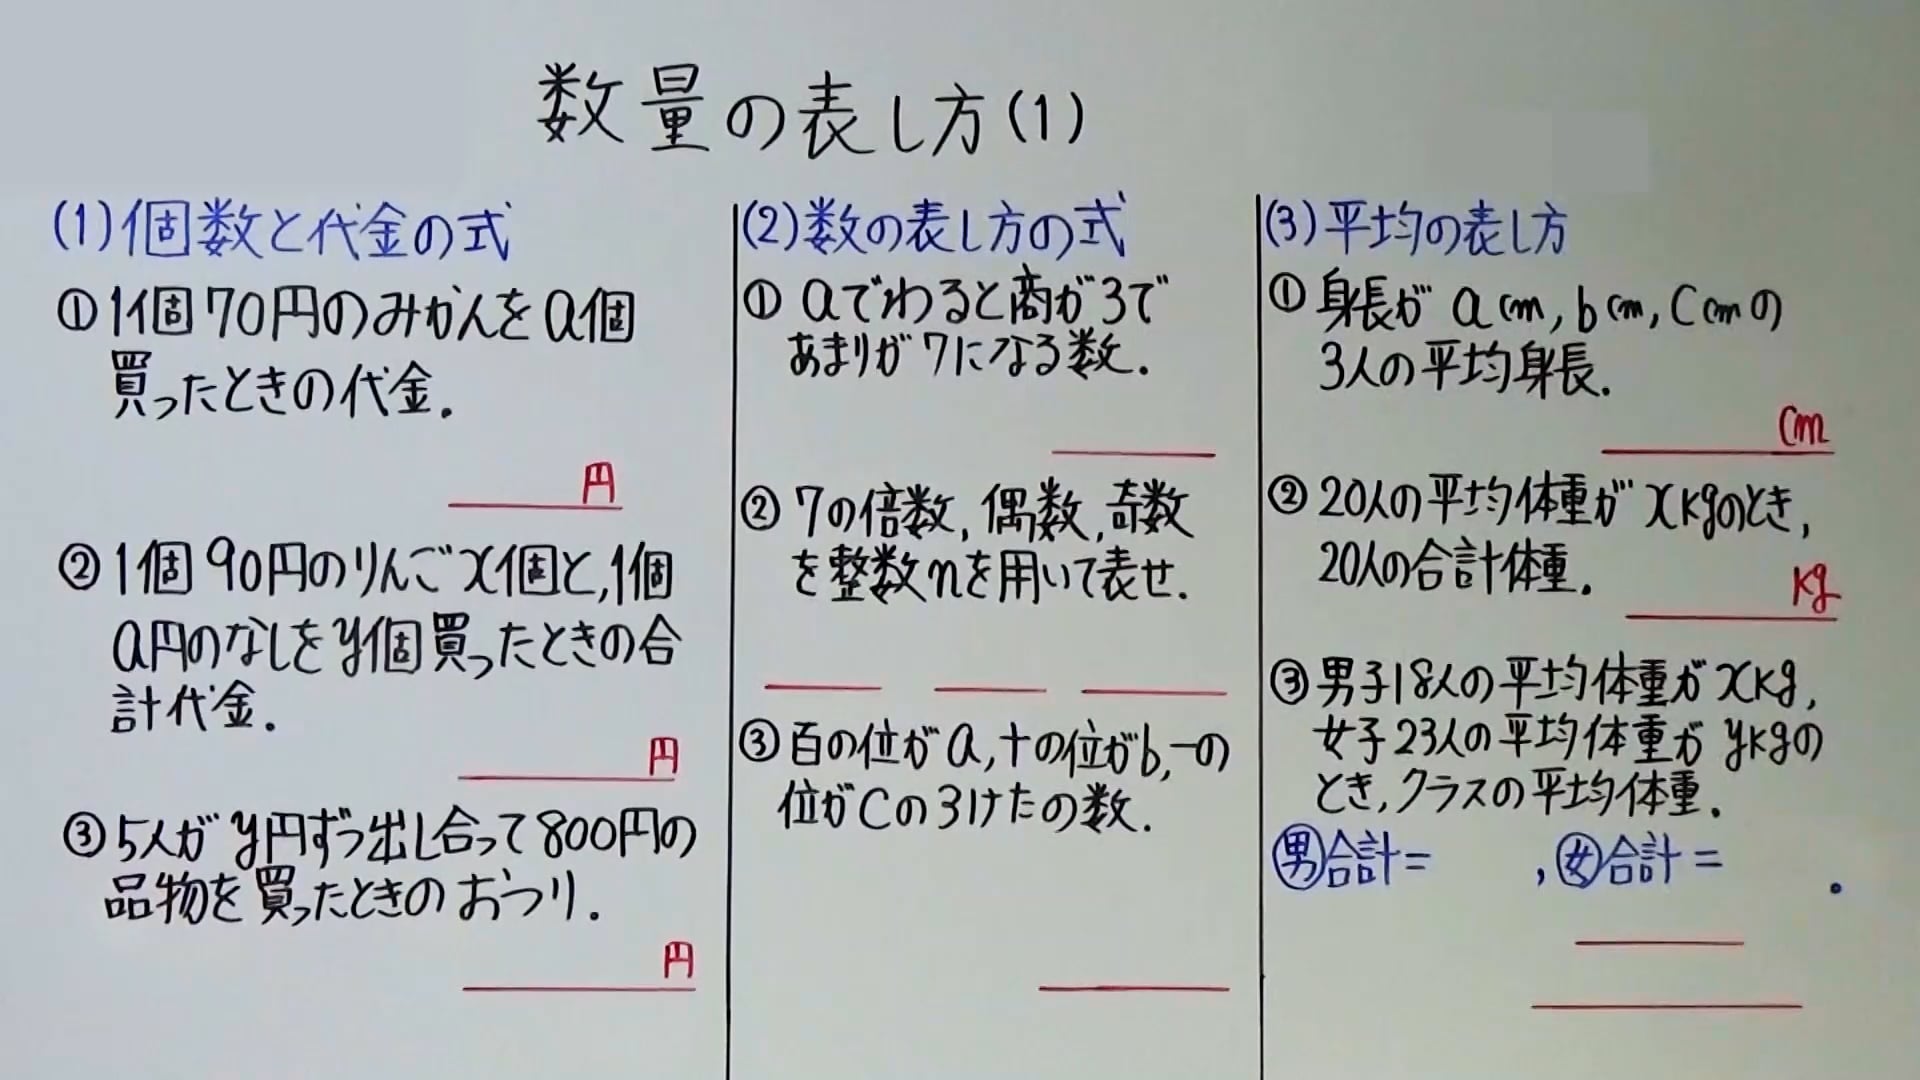 数量の表し方(1)
(1)個数と代金の式
①1個70円のみかんをa個
買ったときの代金.
円
②1個90円のりんごx個と,1個
a円のなしをy個買ったときの合
計代金.
円
③5人がy円ずつ出し合って800円の
品物を買ったときのおつり.
円
(2)数の表し方の式
①aでわると商が3で
あまりが7になる数.
②7の倍数,偶数,奇数
を整数nを用いて表せ.
③百の位がa,十の位がb,一の
位がcの3けたの数.
(3)平均の表し方
①身長がacm,bcm,ccmの
3人の平均身長.
cm
②20人の平均体重がxkgのとき,
20人の合計体重.
kg
③男子18人の平均体重がxkg,
女子23人の平均体重がykgの
とき,クラスの平均体重.
男合計= ,女合計= .